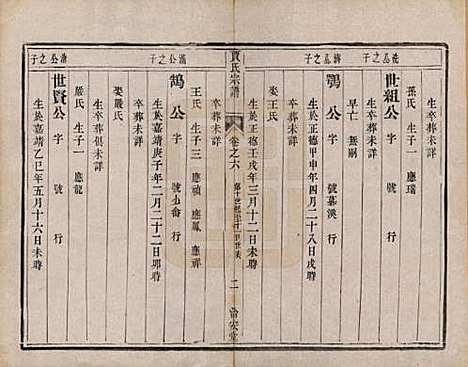 洗公之子
世組公 字 號 行
生卒葬未詳
孫氏 生子一 應瑞
公之子
鶚公 字 號慕溪 行
生於正德甲申年四月二十八日戌時
卒葬未詳
早亡 無嗣
生於正德壬戌年三月十二日未時
卒葬未詳
娶王氏
賈氏宗譜
卷之六
二
公之子
鵠公 字 號 行
生於嘉靖庚子年二月二十二日卯時
卒葬未詳
王氏 生子三 應禎 應鳳 應祥
生卒葬未詳
娶嚴氏
公之子
世賢公 字 號 行
生於嘉靖乙巳年五月十六日未時
卒葬俱未詳
嚴氏 生子一 應龍